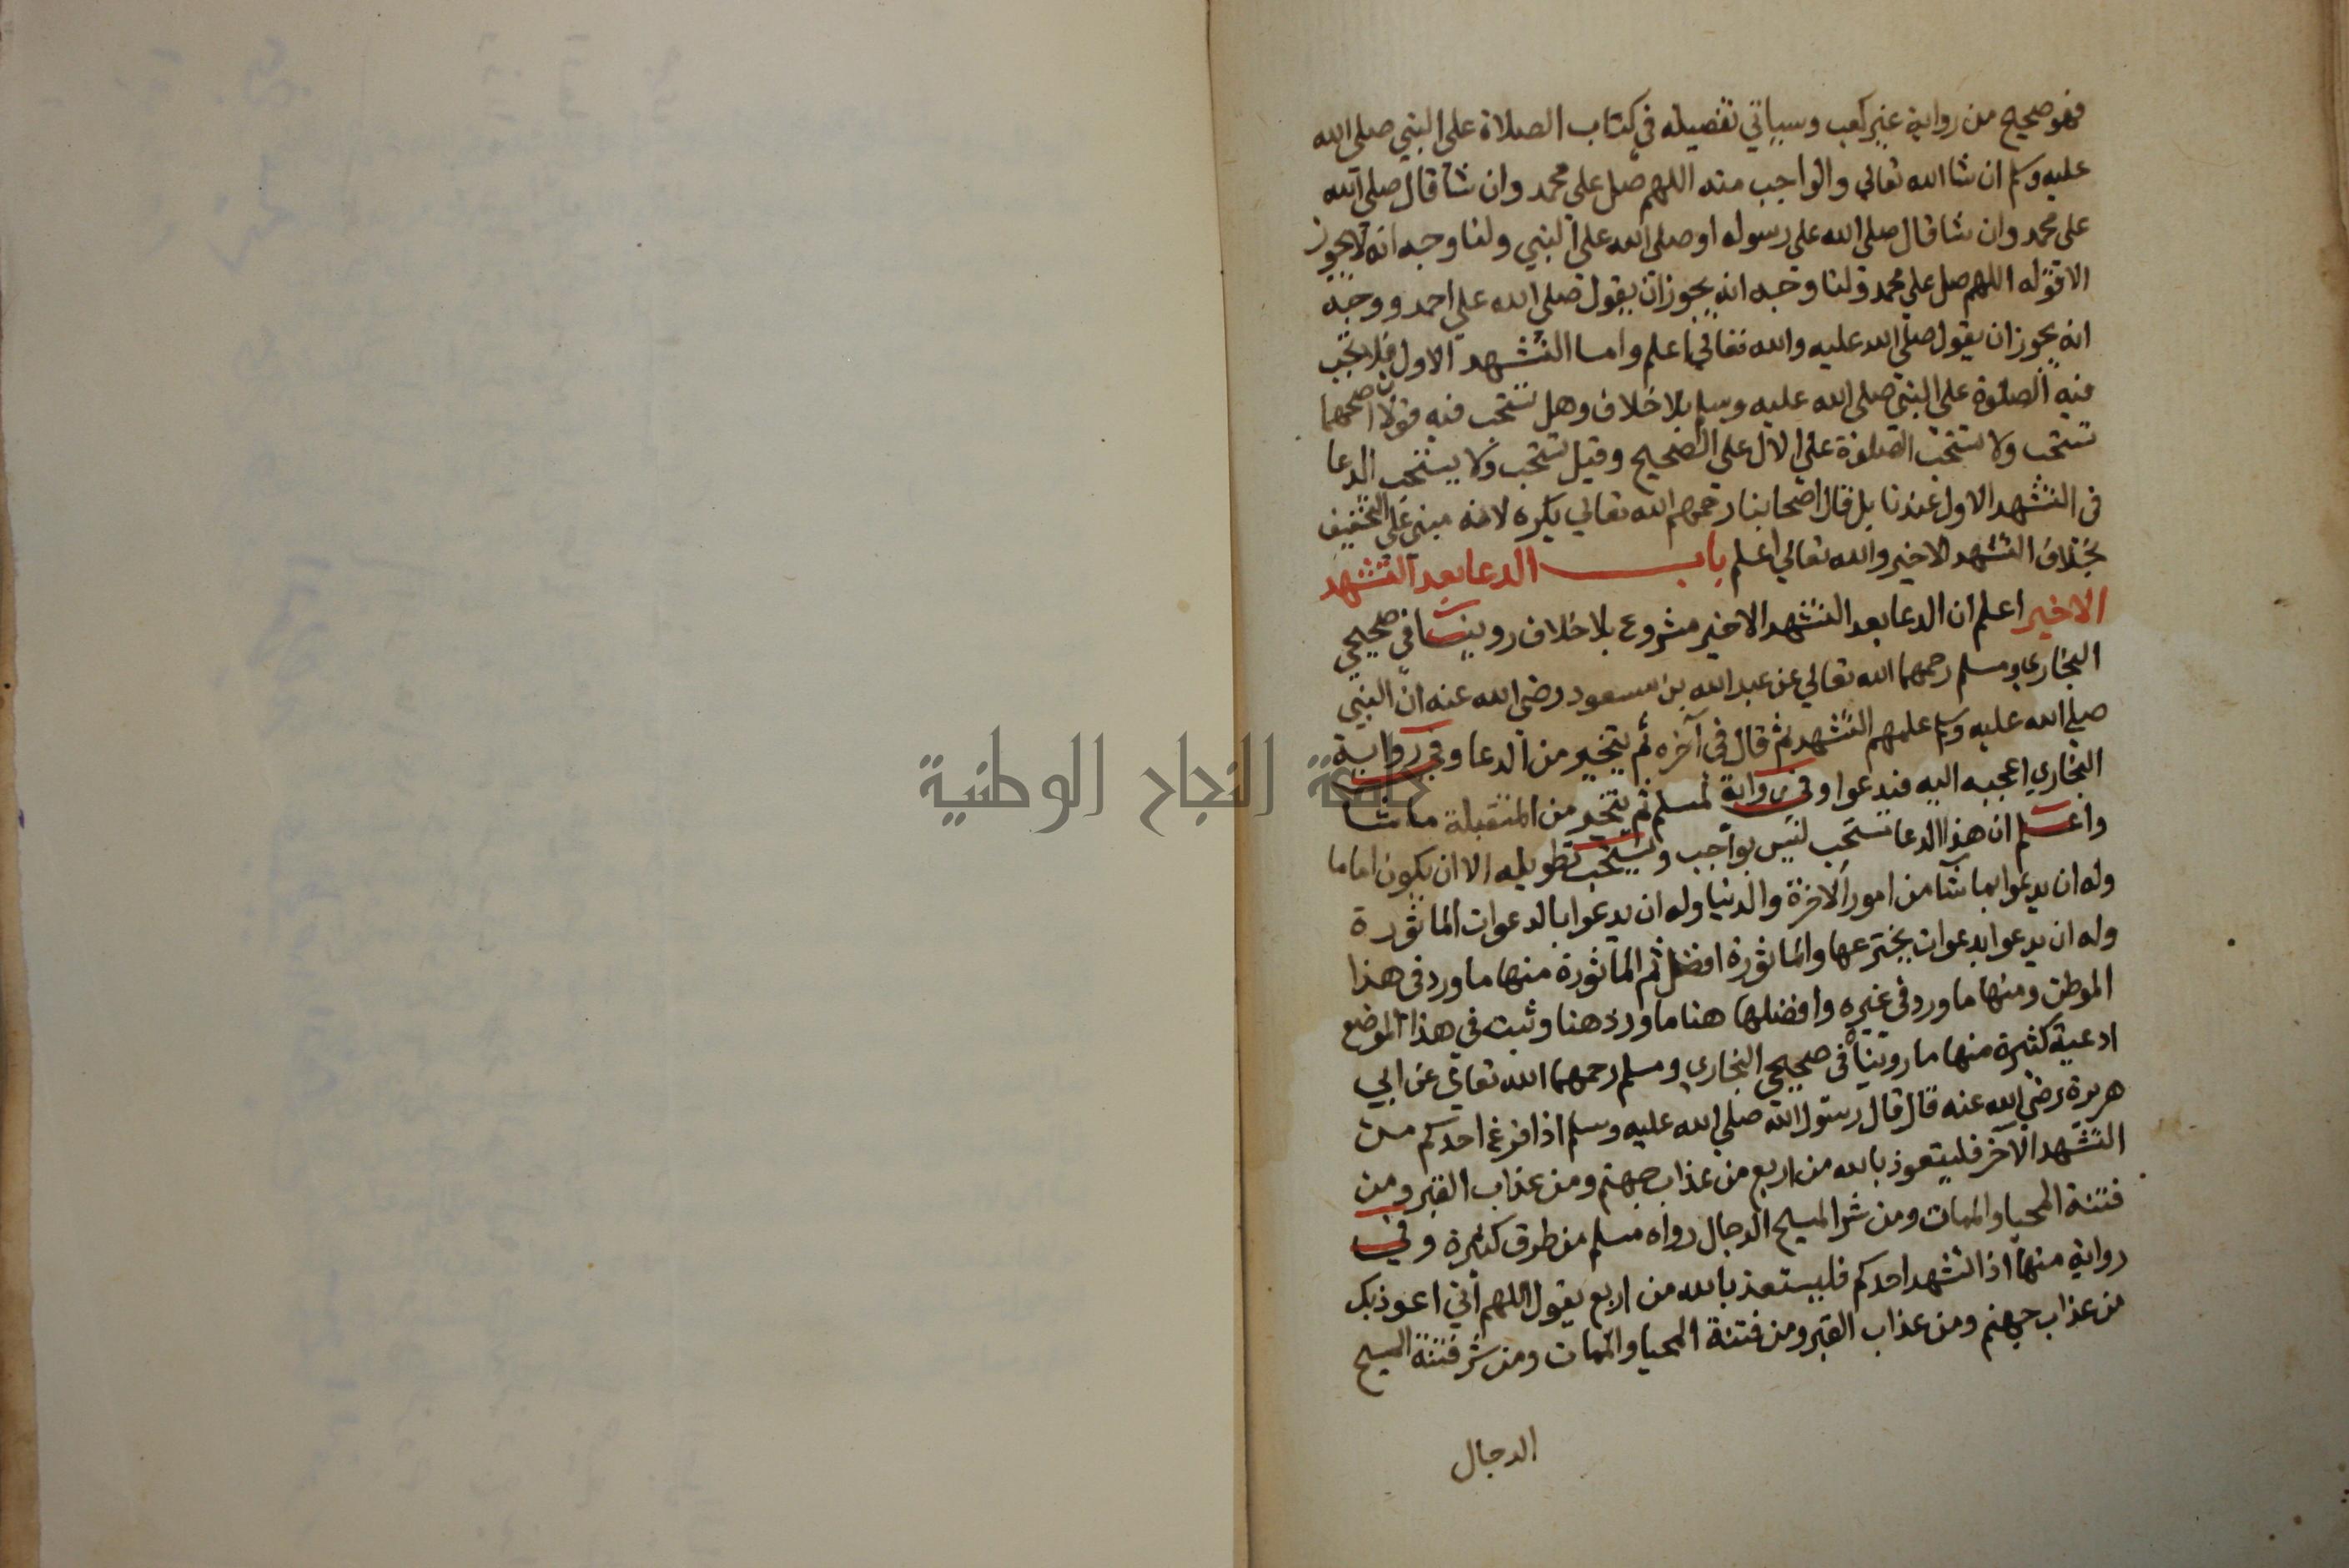 فهو صحيح من رواية غير كعب وسياتي تفصيله في كتاب الصلاة على النبي صلى الله
عليه وسلم ان شا الله تعالي والواجب منه اللهم صل على محمد وان شا قال صلى الله
على محمد وان شا قال صلى الله علي رسوله او صلى الله على النبي ولنا وجه انه لا يجوز
الا قوله اللهم صل علي محمد ولنا وجه انه يجوز ان يقول صلى الله علي احمد ووجه
انه يجوز ان يقول صلى الله عليه والله تعالي اعلم واما التشهد الاول فلا يجب
فيه الصلوة علي النبي صلى الله عليه وسلم بلا خلاف وهل تستحب فيه قولان اصحهما
تستحب ولا تستحب الصلوة على الال علي الصحيح وقيل تستحب ولا يستحب الدعا
في التشهد الاول عندنا بل قال اصحابنا رحمهم الله تعالي يكره لانه مبني على التخفيف
بخلاف التشهد الاخير والله تعالي اعلم باب الدعا بعد التشهد
الاخير اعلم ان الدعا بعد التشهد الاخير مشروع بلا خلاف روينا في صحيحي
البخاري ومسلم رحمهما الله تعالي عن عبد الله بن مسعود رضي الله عنه ان النبي
صلى الله عليه وسلم علمهم التشهد ثم قال في آخره ثم يتخير من الدعا وفي رواية
البخاري اعجبه اليه فيدعوا وفي رواية لمسلم ثم يتخير من المتقبلة ما شا
واعلم ان هذا الدعا تستحب ليس بواجب ويستحب تطويله الا ان يكون اماما
وله ان يدعوا بما شآ من امور الآخرة والدنيا وله ان يدعوا بالدعوات الماثورة
وله ان يدعوا بدعوات يخترعها والماثورة افضل ثم الماثورة منها ما ورد في هذا
الموطن ومنها ما ورد في غيره وافضلها هنا ما ورد هنا وثبت في هذا الموضع
ادعية كثيرة منها ما رويناه في صحيحي البخاري ومسلم رحمهما الله تعالي عن ابي
هريرة رضي الله عنه قال قال رسول الله صلى الله عليه وسلم اذا فرغ احدكم من
التشهد الآخر فليتعوذ بالله من اربع من عذاب جهنم ومن عذاب القبر ومن
فتنة المحيا والممات ومن شر المسيح الدجال رواه مسلم من طرق كثيرة وفي
رواية منها اذا تشهد احدكم فليستعذ بالله من اربع يقول اللهم اني اعوذ بك
من عذاب جهنم ومن عذاب القبر ومن فتنة المحيا والممات ومن شر فتنة المسيح
الدجال
جامعة النجاح الوطنية